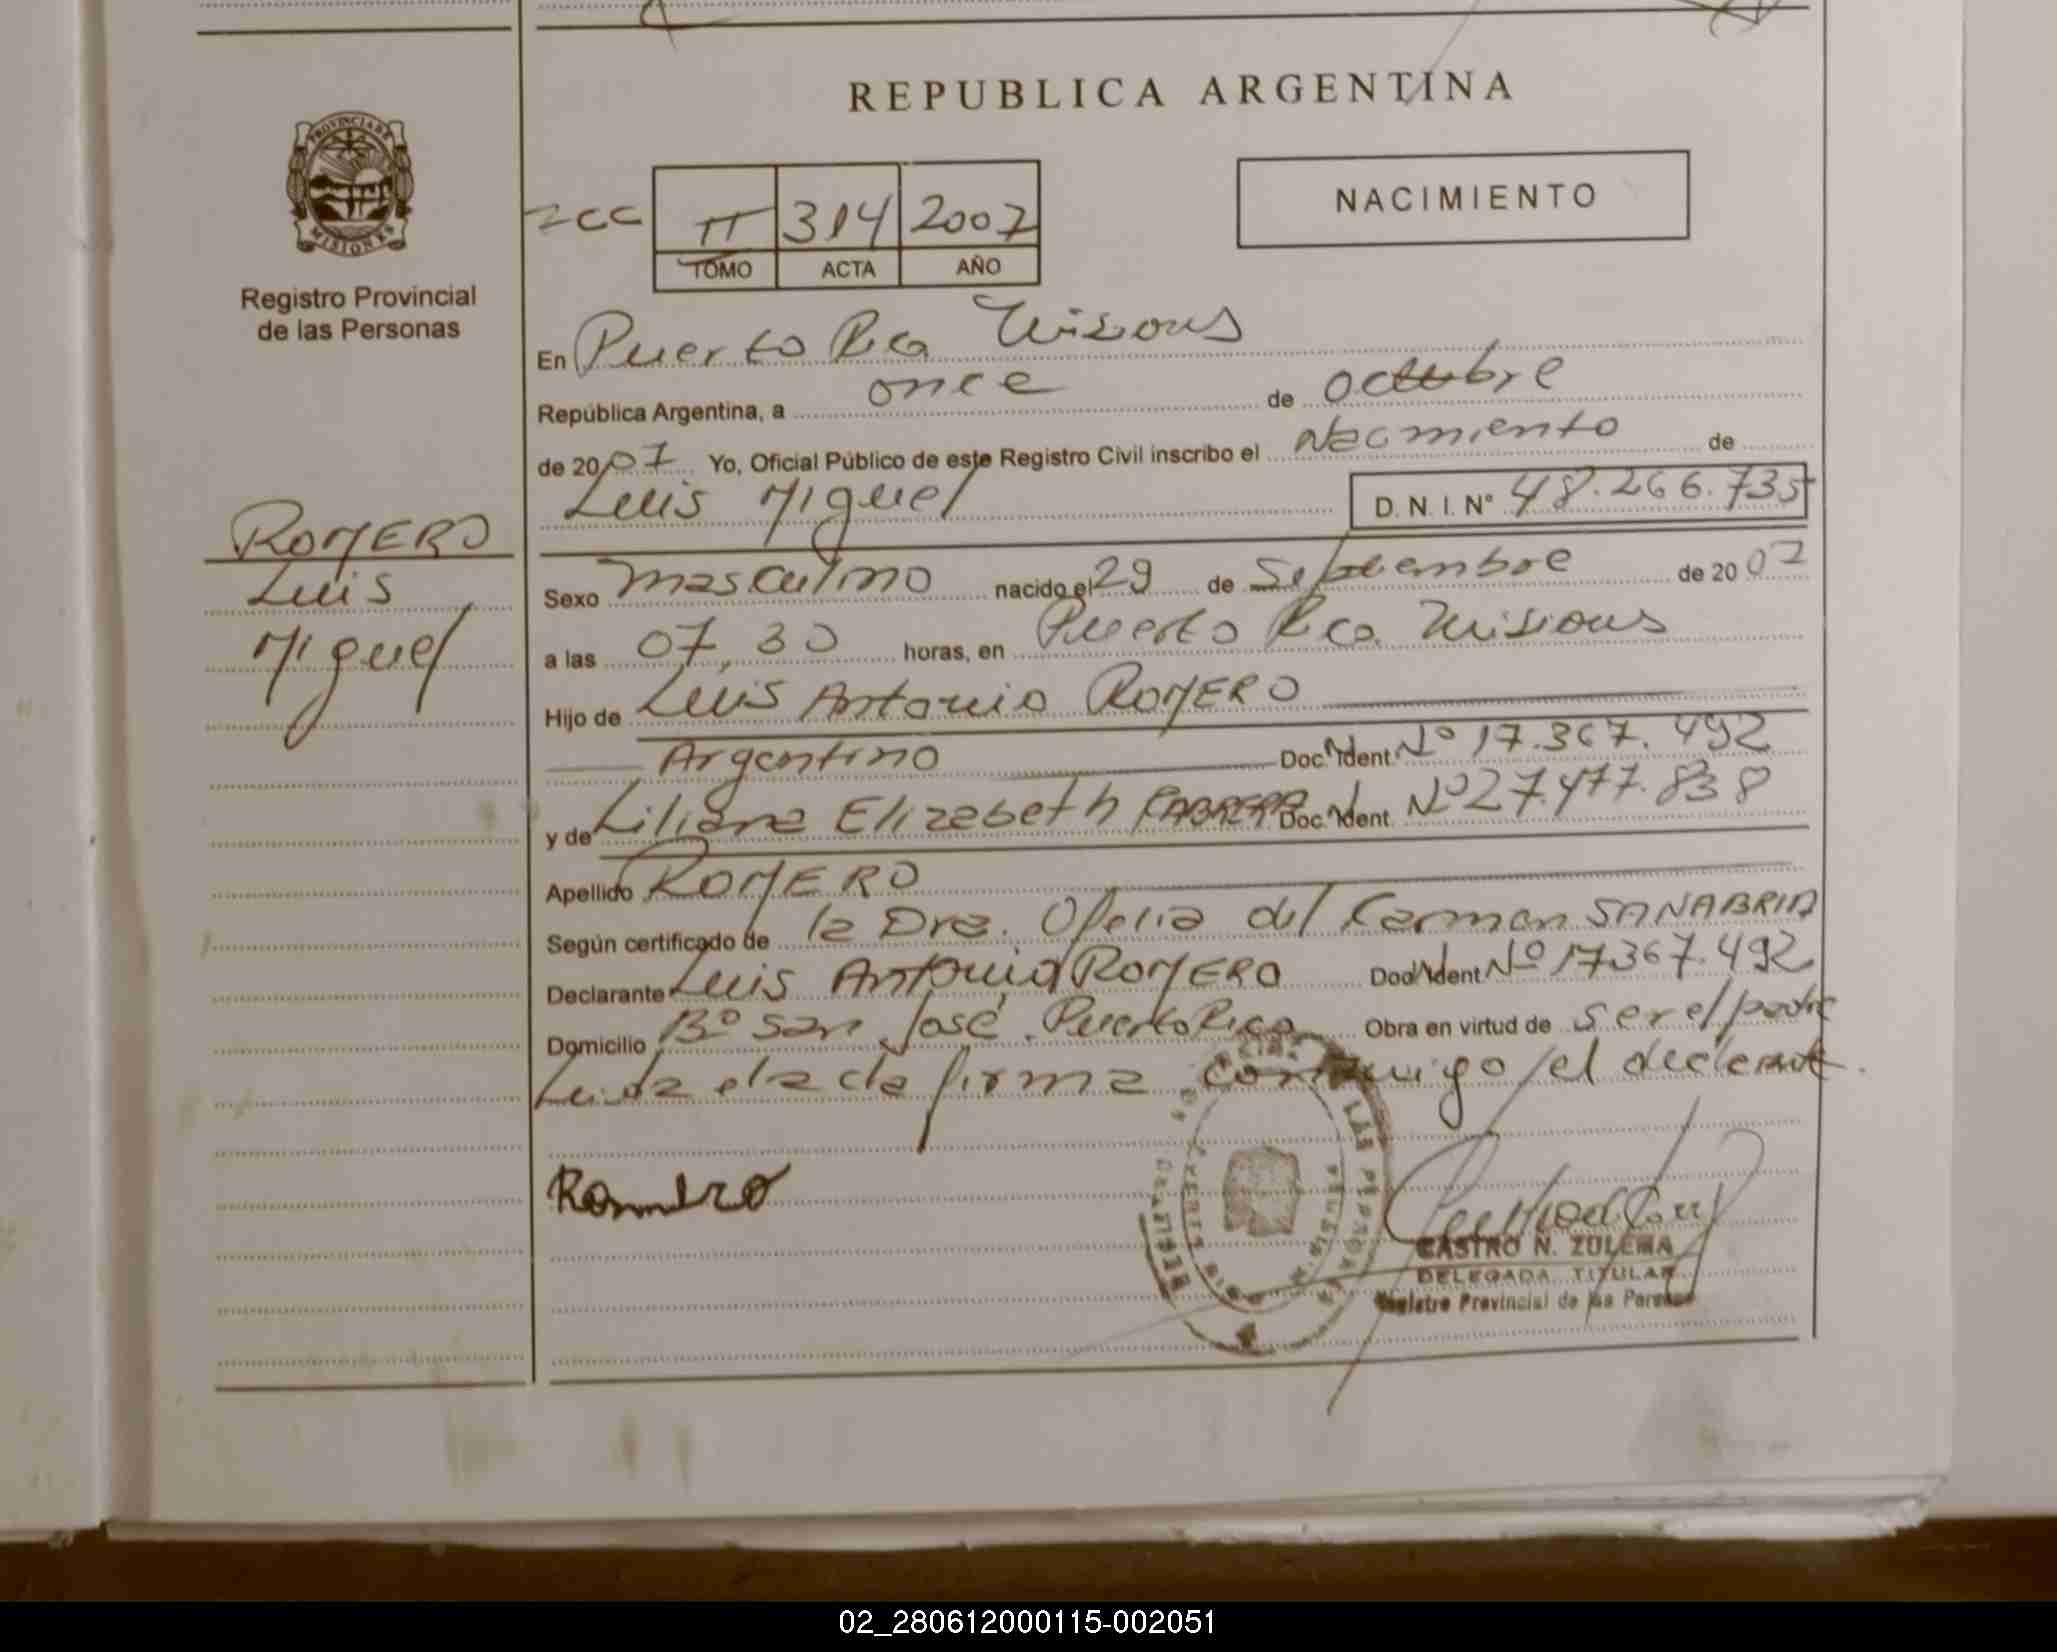 REPUBLICA ARGENTINA
PROVINCIA DE
MISIONES
Registro Provincial
de las Personas
ROMERO
Luis
Miguel
II 314 2007
TOMO ACTA AÑO
NACIMIENTO
En Puerto Rico Misiones
República Argentina, a once de octubre
de 2007 Yo, Oficial Público de este Registro Civil inscribo el Nacimiento de
Luis Miguel D. N. I. N° 48.266.735
Sexo masculino nacido el 29 de Septiembre de 2007
a las 07,30 horas, en Puerto Rico Misiones
Hijo de Luis Antonio ROMERO
Argentino Doc. Ident. Nº 17.367.492
y de Liliana Elizabeth CABRERA Doc. Ident. Nº 27.477.838
Apellido ROMERO
Según certificado de la Dra. Ofelia del Carmen SANABRIA
Declarante Luis Antonio ROMERO Doc. Ident. Nº 17367.492
Domicilio Bº San José. Puerto Rico Obra en virtud de ser el padre
Leida el acta firma conmigo el declarante.
Romero
CASTRO N. ZULEMA
DELEGADA TITULAR
Registro Provincial de las Personas
02_280612000115-002051